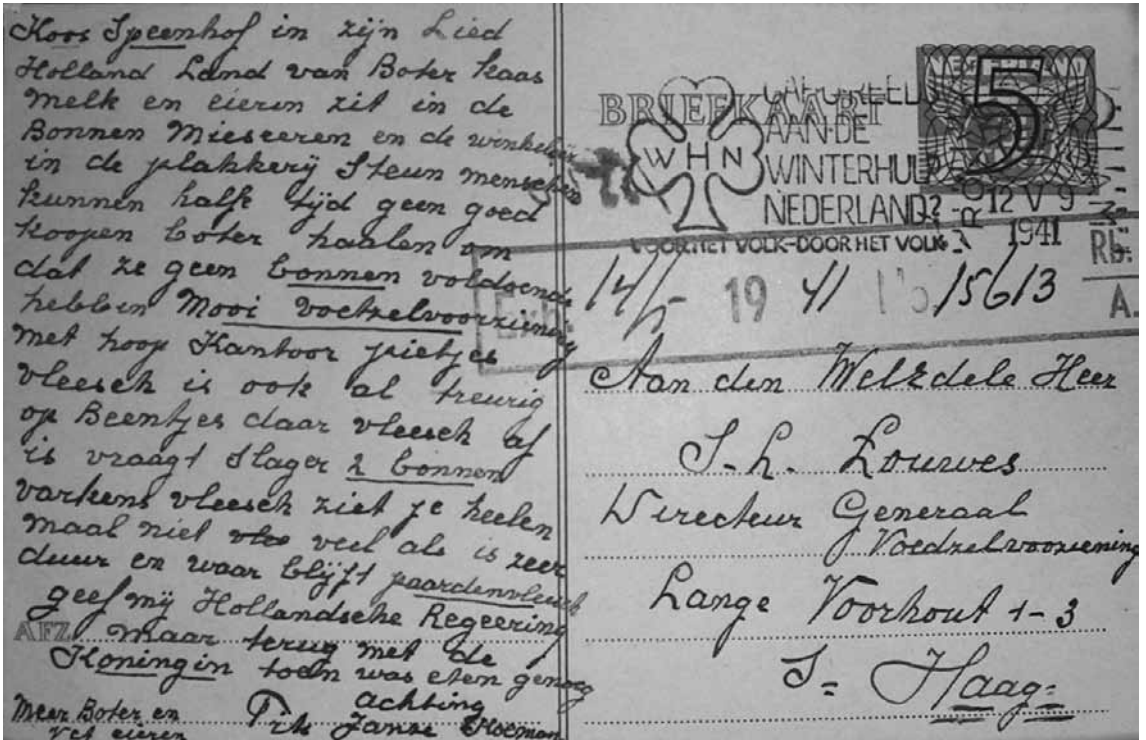 Koos Speenhof in zijn Lied
Holland Land van Boter kaas
melk en eieren zit in de
Bonnen Mieseeren en de winkelier
in de plakkerij Steun menschen
kunnen halfe tijd geen goed
koopen boter haalen om
dat ze geen bonnen voldoende
hebben Mooi voetzelvoorziening
met hoop Kantoor pietjes
vleesch is ook al treurig
op Beentjes daar vleesch af
is vraagt Slager 2 bonnen
varkens vleesch ziet je heelen
maal niet veel als is zeer
duur en waar blijft paardenvleesch
geef mij Hollandsche Regeering
AFZ. maar terug met de
Koningin toen was eten genoeg
achting
Meer Boter en
vet eieren
Janse
BRIEFKAART
NEDERLAND
5
WHN
AAN DE
WINTERHULP
NEDERLAND?
VOOR HET VOLK-DOOR HET VOLK
12 V 9
1941
14/5- 19 41 15613
A.
Aan den WelEdele Heer
S. L. Louwes
Directeur Generaal
Voedzelvoorziening
Lange Voorhout 1-3
S= Haag=